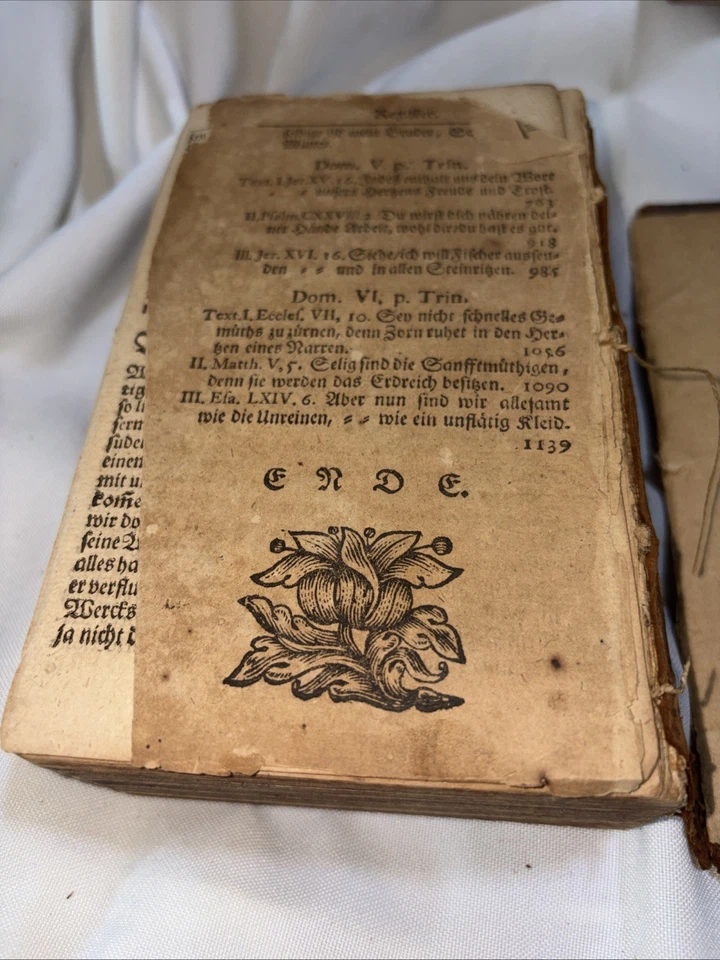 Register.
Dom. V. p. Trin.
Text. I. Jer. XV, 16. enthalt uns dein Wort
unsers Hertzens Freude und Trost.
763
II. Psalm. CXXVIII. 2. Du wirst dich nähren dei-
ner Hände Arbeit, wohl dir, du hast es gut.
918
III. Jer. XVI. 16. Siehe/ich will Fischer aussen-
den ⸗ ⸗ und in allen Steinritzen. 985
Dom. VI, p. Trin.
Text. I. Eccles. VII, 10. Sey nicht schnelles Ge-
müths zu zürnen, denn Zorn ruhet in den Her-
tzen eines Narren. 1056
II. Matth. V, 5. Selig sind die Sanfftmüthigen,
denn sie werden das Erdreich besitzen. 1090
III. Esa. LXIV. 6. Aber nun sind wir allesamt
wie die Unreinen, ⸗ ⸗ wie ein unflätig Kleid.
1139
E N D E.
so
einen
mit
kom̃e
wir do
seine
alles ha
er verflu
Wercks
ja nicht